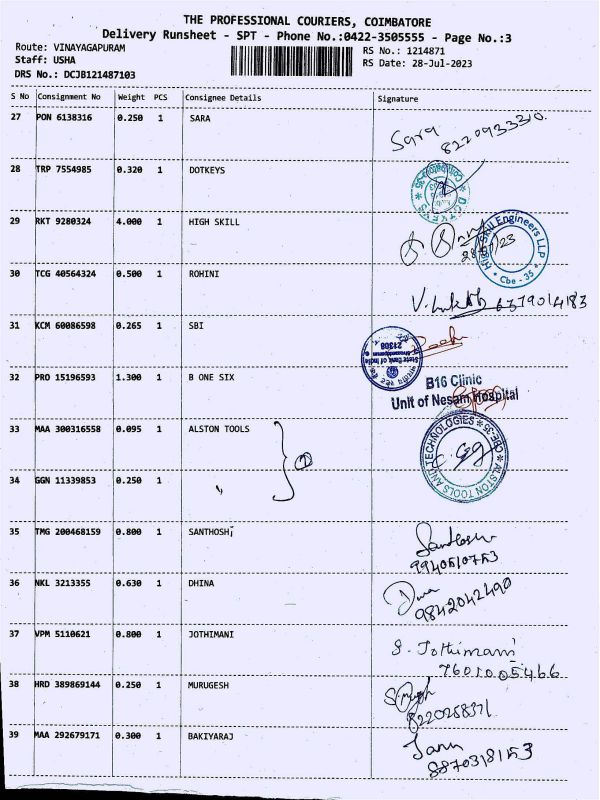 THE PROFESSIONAL COURIERS, COIMBATORE
Delivery Runsheet - SPT - Phone No.:0422-3505555 - Page No.:3
Route: VINAYAGAPURAM
RS No.: 1214871
Staff: USHA
RS Date: 28-Jul-2023
DRS No.: DCJB121487103
S No Consignment No Weight PCS Consignee Details Signature
27 PON 6138316 0.250 1 SARA
Sara 8220933310.
28 TRP 7554985 0.320 1 DOTKEYS
29 RKT 9280324 4.000 1 HIGH SKILL
28/07/23
High Skill Engineers LLP
* Cbe - 35 *
30 TCG 40564324 0.500 1 ROHINI
6379014183
31 KCM 60086598 0.265 1 SBI
State Bank of India
21308
32 PRO 15196593 1.300 1 B ONE SIX
B16 Clinic
Unit of Nesam Hospital
33 MAA 300316558 0.095 1 ALSTON TOOLS
34 GGN 11339853 0.250 1 "
ALSTON TOOLS AND TECHNOLOGIES * CBE-35 *
35 TMG 200468159 0.800 1 SANTHOSHi
Santhosh
9940510753
36 NKL 3213355 0.630 1 DHINA
9842042490
37 VPM 5110621 0.800 1 JOTHIMANI
S. Jothimani
7601005466
38 HRD 389869144 0.250 1 MURUGESH
8220258371
39 MAA 292679171 0.300 1 BAKIYARAJ
8870318153